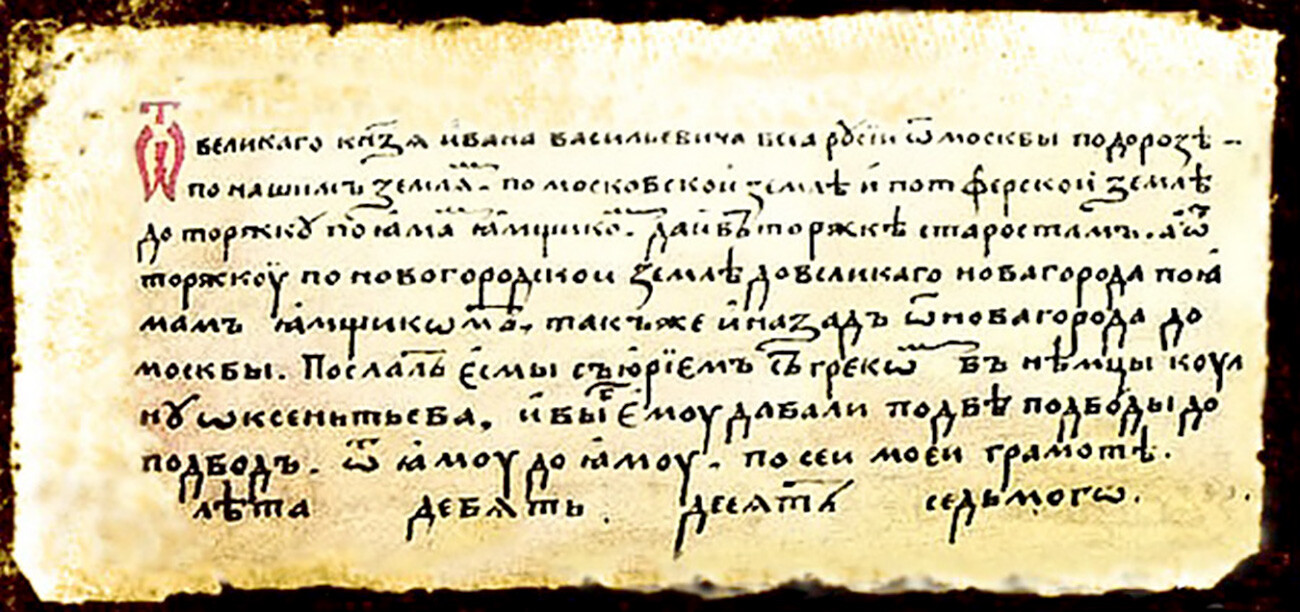 Ѿ великаго кнѧзя ивана васильевича всеа рꙋсїи ѿ москвы подорозѣ –
по нашимъ землѧм. по московской землѣ и по тферской землѣ
до торжкꙋ по ꙗмамъ ꙗмщикомъ. да и въ торжкѣ старостамъ. а ѿ
торжкоу по новогородской землѣ до великаго новагорода по ꙗ
мамъ ꙗмщикѡмъ. такъже и назадъ ѿ новагорода до
москвы. Послалъ есмы съ юрїемъ съ грекѡм въ нѣмцы коул
нꙋ ѡксентьева. и вы емоу давали подвѣ подводы до
подводъ. ѿ ꙗмоу до ꙗмоу. по сеи моеи грамотѣ.
лѣта девѧть. десятъ седьмогѡ.